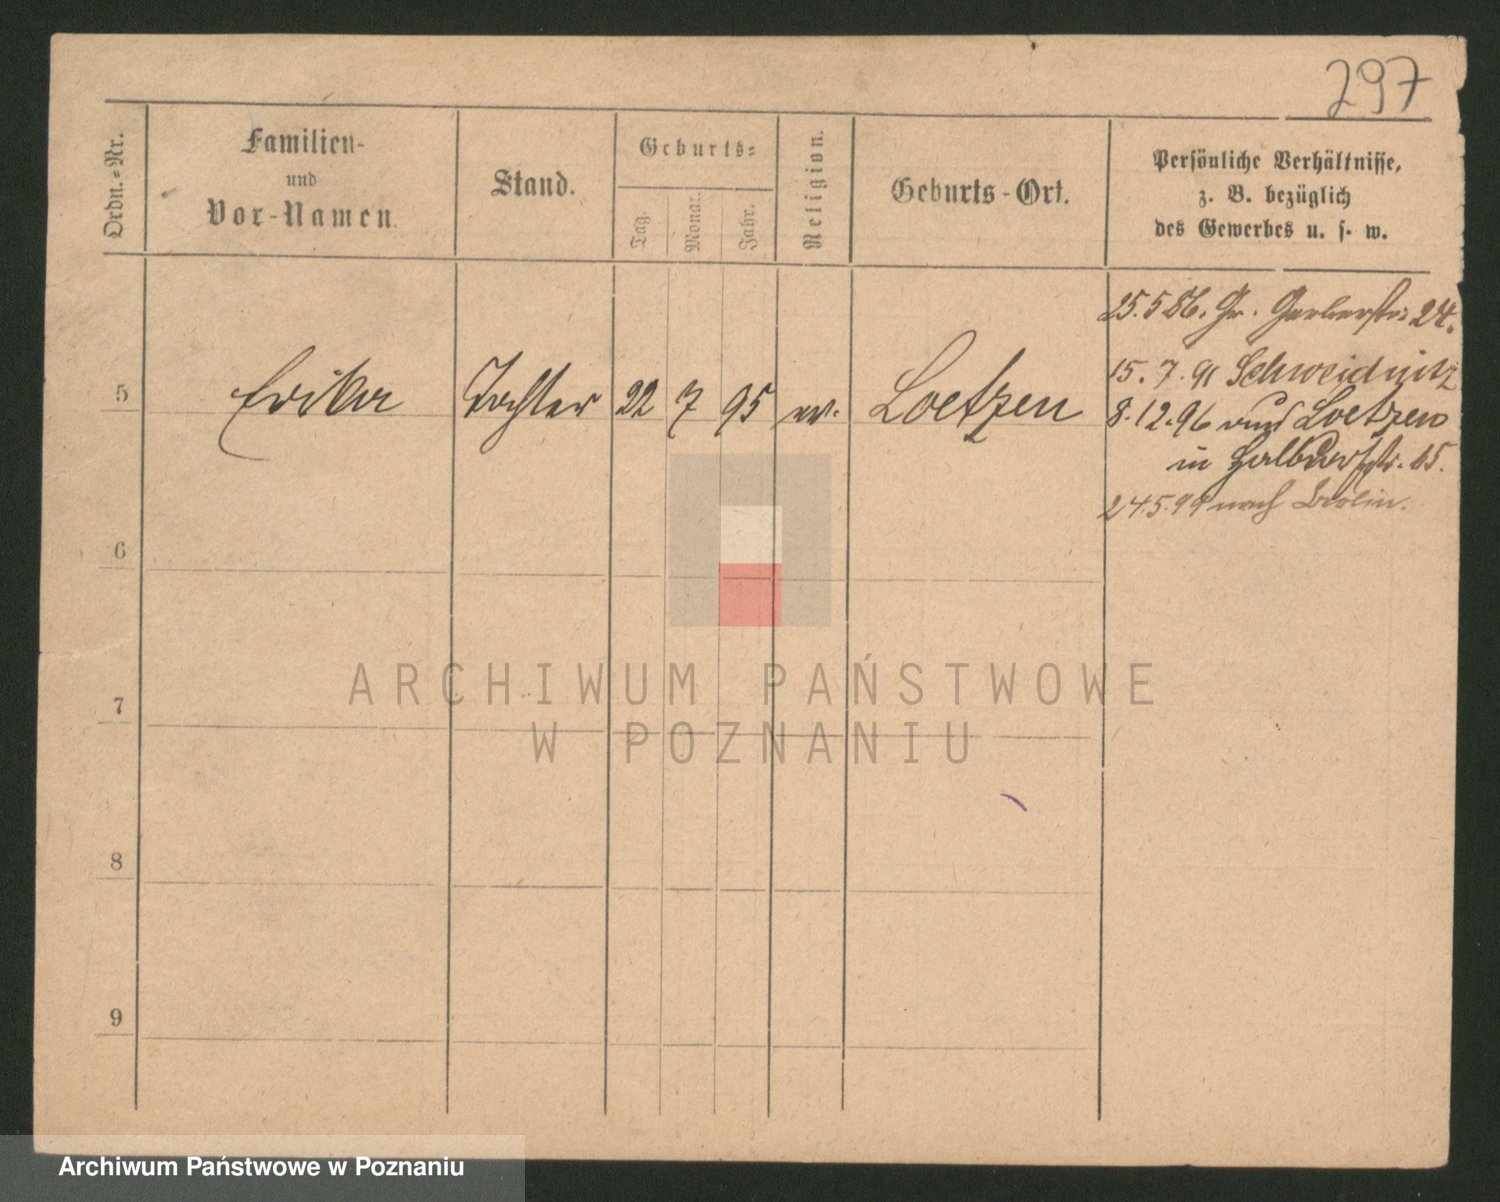 297
Ordn.-Nr.
Familien-
und
Vor-Namen.
Stand.
Geburts-
Tag.
Monat.
Jahr.
Religion.
Geburts-Ort.
Persönliche Verhältnisse,
z. B. bezüglich
des Gewerbes u. s. w.
25.5.86. Gr. Gerberstr. 24.
15. 7. 91 Schweidnitz
5 Erika Tochter 22 7 95 ev. Loetzen
8.12.96 aus Loetzen
in Halbdorfstr. 15.
24.5.99 nach Berlin.
6
7
8
9
ARCHIWUM PAŃSTWOWE
W POZNANIU
Archiwum Państwowe w Poznaniu